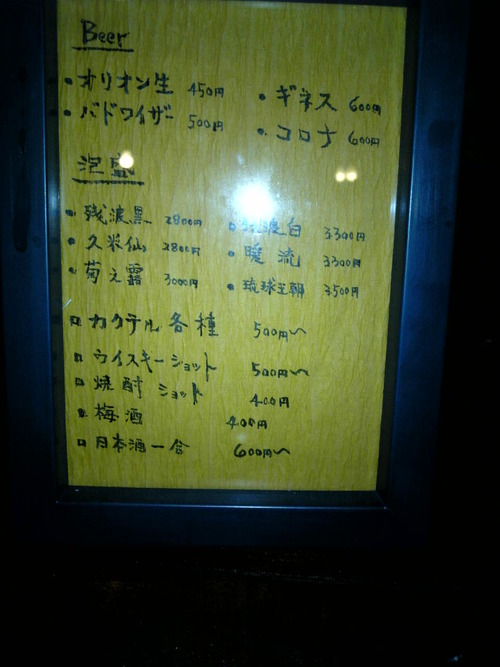 Beer
・オリオン生 450円 ・ギネス 600円
・バドワイザー 500円 ・コロナ 600円
泡盛
・残波黒 2800円 波白 3300円
・久米仙 2800円 ・暖流 3300円
・菊之露 3000円 ・琉球王朝 3500円
□カクテル各種 500円〜
□ウイスキーショット 500円〜
□焼酎ショット 400円
□梅酒 400円
□日本酒一合 600円〜